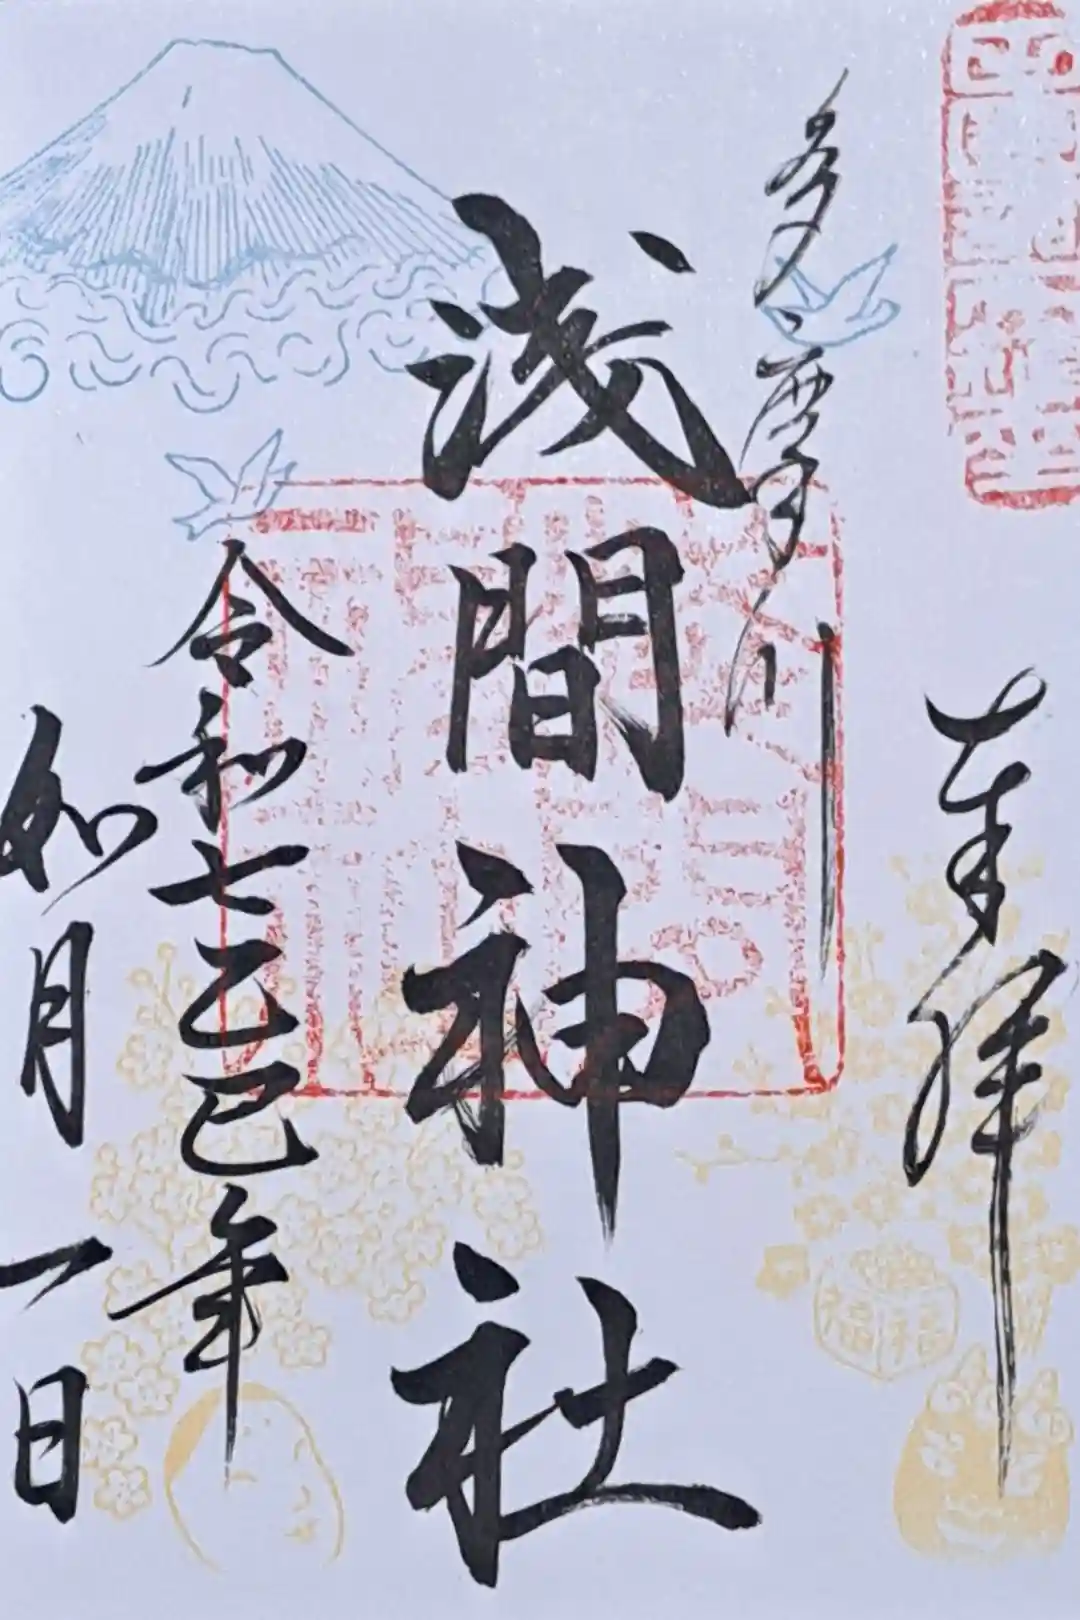 奉拝
多摩川
浅間神社
令和七乙巳年
如月一日
福